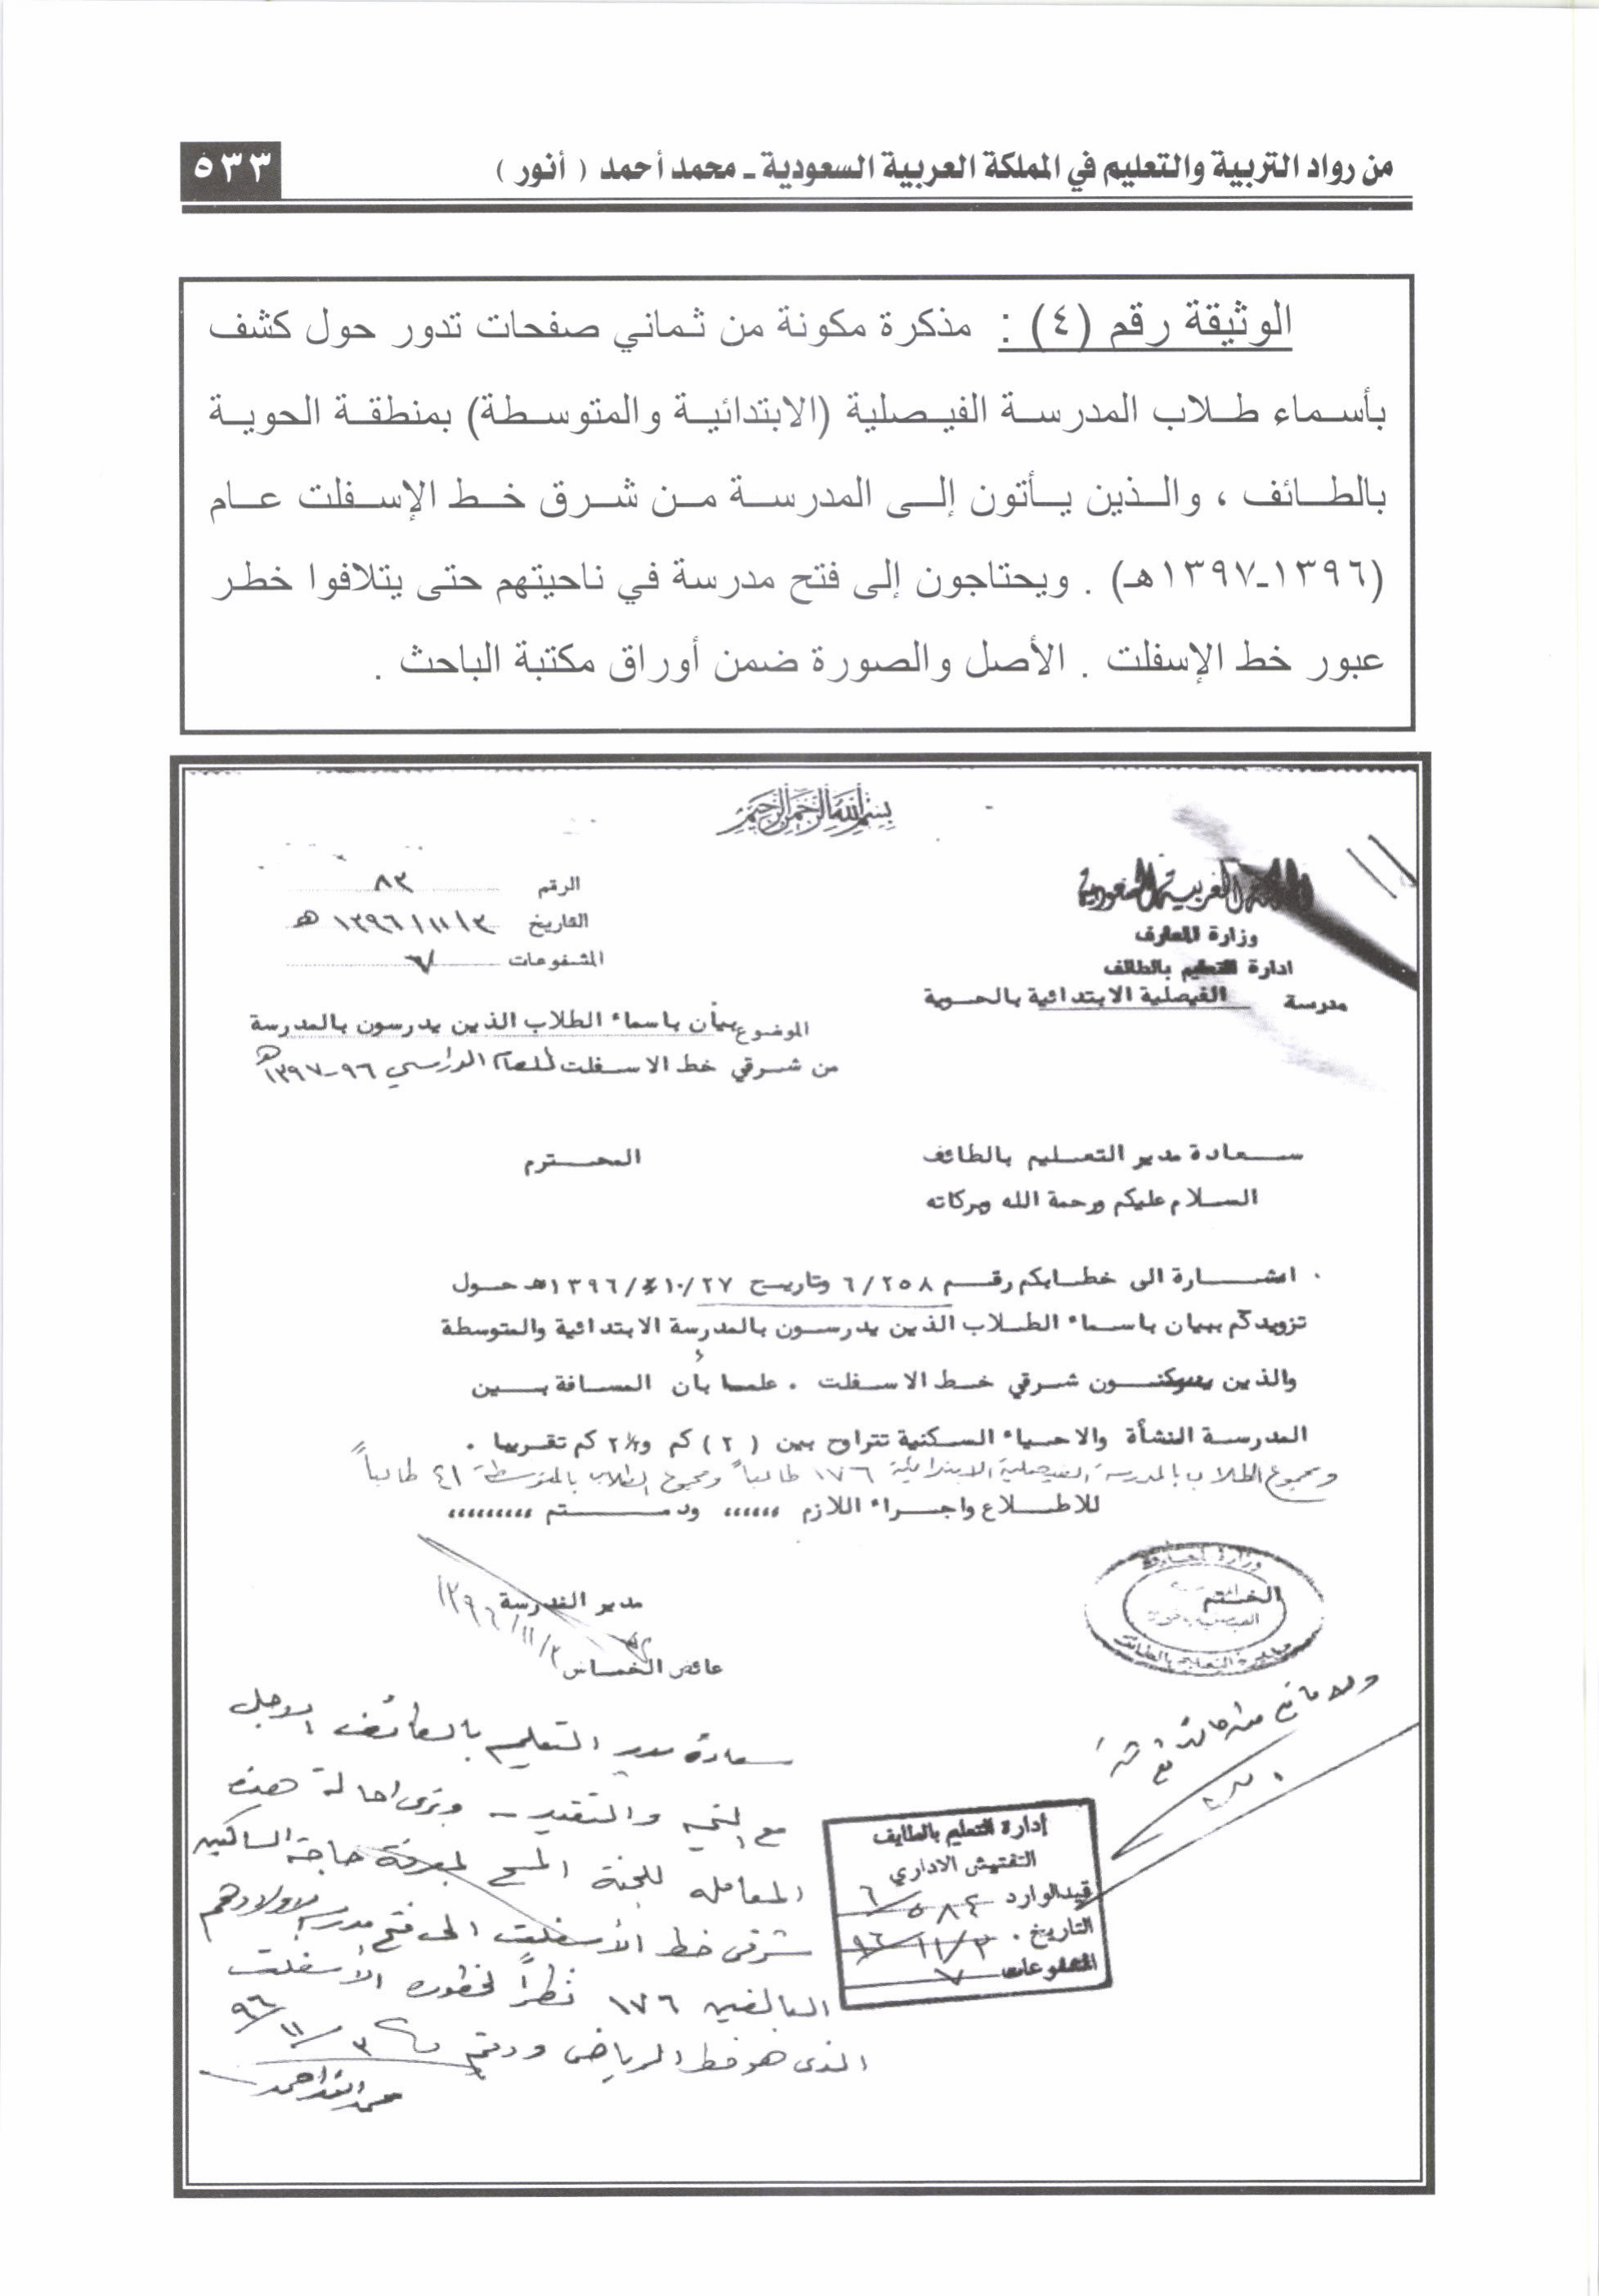 من رواد التربية والتعليم في المملكة العربية السعودية ـ محمد أحمد ( أنور )
٥٣٣
الوثيقة رقم (٤) : مذكرة مكونة من ثماني صفحات تدور حول كشف
بأسماء طلاب المدرسة الفيصلية (الابتدائية والمتوسطة) بمنطقة الحوية
بالطائف ، والذين يأتون إلى المدرسة من شرق خط الإسفلت عام
(١٣٩٦-١٣٩٧هـ) . ويحتاجون إلى فتح مدرسة في ناحيتهم حتى يتلافوا خطر
عبور خط الإسفلت . الأصل والصورة ضمن أوراق مكتبة الباحث .
بسم الله الرحمن الرحيم
المملكة العربية السعودية
وزارة المعارف
ادارة التعليم بالطائف
مدرسة الفيصلية الابتدائية بالحوية
الرقم ٨٣
التاريخ ٣ / ١١ / ١٣٩٦ هـ
المشفوعات
الموضوع بيأن باسماء الطلاب الذين يدرسون بالمدرسة
من شرقي خط الاسفلت للعام الدراسي ٩٦-١٣٩٧هـ
سعادة مدير التعليم بالطائف المحترم
السلام عليكم ورحمة الله وبركاته
اشارة الى خطابكم رقم ٦/٢٥٨ وتاريخ ١٠/٢٧/١٣٩٦هـ حول
تزويدكم ببيان باسماء الطلاب الذين يدرسون بالمدرسة الابتدائية والمتوسطة
والذين يسكنون شرقي خط الاسفلت . علما بأن المسافة بين
المدرسة النشأة والاحياء السكنية تتراوح بين (٢) كم و ٢½ كم تقريبا .
ومجموع الطلاب بالمدرسة الفيصلية الابتدائية ١٧٦ طالباً ومجموع الطلاب بالمتوسطة ٤١ طالباً
للاطلاع واجراء اللازم ،،،،،، ودمتم ،،،،،،،،،
مدير المدرسة
٣/١١/١٣٩٦
عائض الخماش
وزارة المعارف
الختم
مديرية التعليم بالطائف
ولا مانع من
سعادة مدير التعليم بالطائف الاجل
مع التحيه والتقدير - ونرى احالة هذه
المعامله للجنة المسح لمعرفة حاجة الساكنين
شرقى خط الأسفلت الى فتح مدرسه لاولادهم
البالغين ١٧٦ نظراً لخطوره الأسفلت
الذى هو خط الرياض ودمتم ٣/١١/٩٦
محمد انور احمد
إدارة التعليم بالطايف
التفتيش الاداري
قيد الوارد ٥٨٤/٦
التاريخ ٣/١١/٩٦
المشفوعات ٧